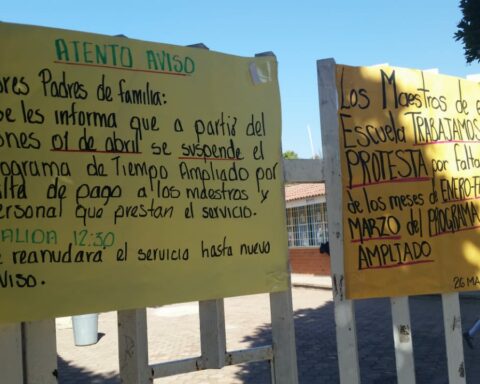 ATENTO AVISO
Padres de familia:
se les informa que a partir del
01 de abril se suspende el
de Tiempo Ampliado por
de pago a los maestros y
que prestan el servicio.
12:30
reanudara el servicio hasta nuevo
Los Maestros de
Escuela TRABATAMOS
PROTESTA por
de los meses de ENERO-
MARZO del
AMPLIADO
26